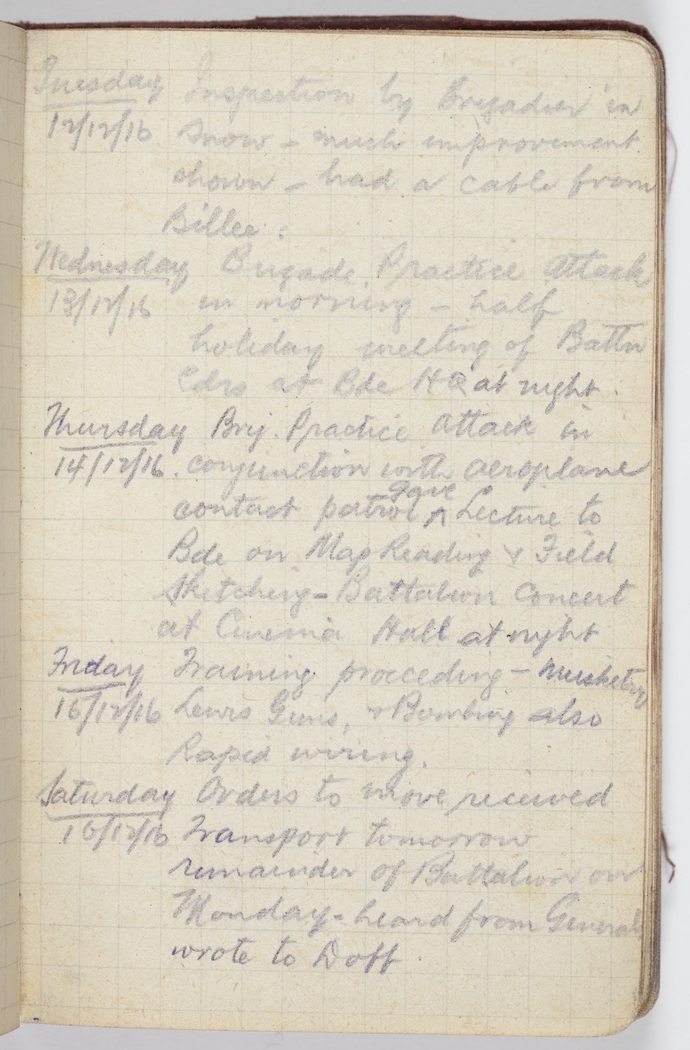 Tuesday Inspection by Brigadier in
12/12/16 snow - much improvement
shown - had a cable from
Billee.
Wednesday Brigade Practice Attack
13/12/16 in morning - half
holiday meeting of Battn
Cdrs at Bde HQ at night.
Thursday Brig. Practice Attack in
14/12/16. conjunction with aeroplane
contact patrol gave Lecture to
Bde on Map Reading & Field
Sketching - Battalion Concert
at Cinema Hall at night
Friday Training proceeding - musketry
15/12/16 Lewis Guns, & Bombing also
Rapid wiring.
Saturday Orders to move received
16/12/16 Transport tomorrow
remainder of Battalion on
Monday - heard from General
wrote to Doff.